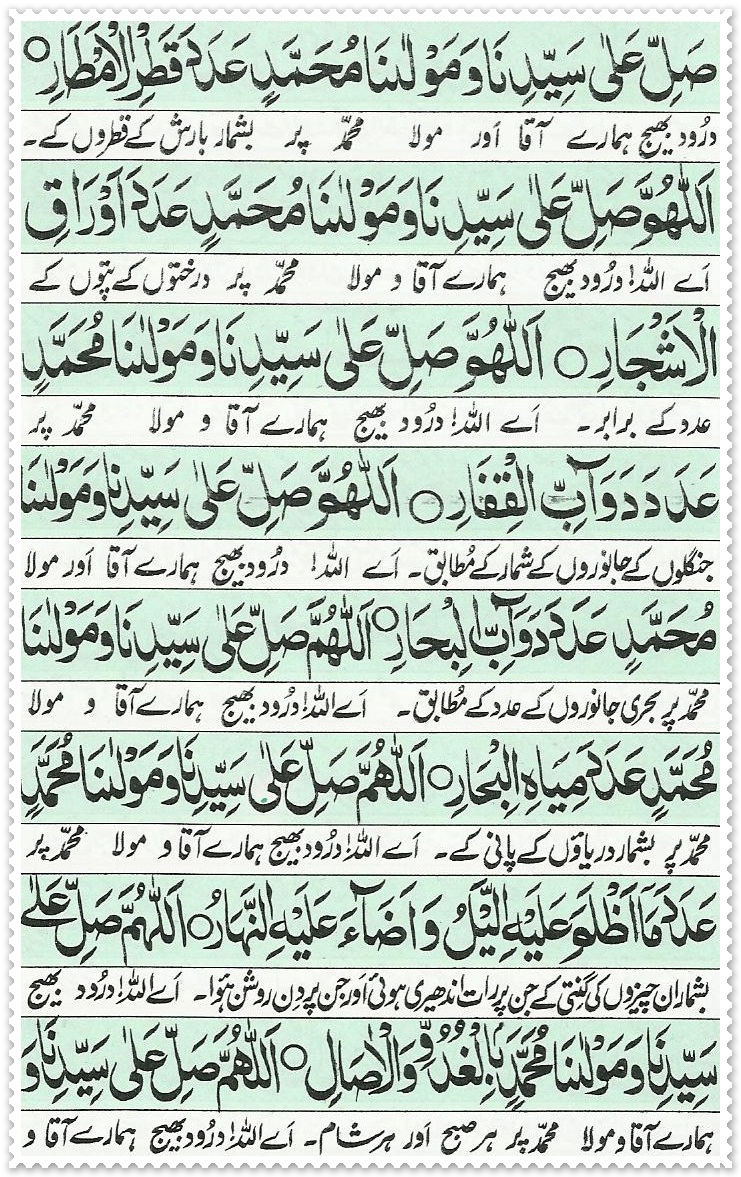 صَلِّ عَلٰی سَیِّدِنَا وَمَوْلٰىنَا مُحَمَّدٍ عَدَدَ قَطْرِ الْاَمْطَارِ ○
درُود بھیج ہمارے آقا اَور مولا محمّد پر بشمار بارش کے قطروں کے۔
اَللّٰهُمَّ صَلِّ عَلٰی سَیِّدِنَا وَمَوْلٰىنَا مُحَمَّدٍ عَدَدَ اَوْرَاقِ
اَے اللہ! درُود بھیج ہمارے آقا و مولا محمّد پر درختوں کے پتّوں کے
الْاَشْجَارِ ○ اَللّٰهُمَّ صَلِّ عَلٰی سَیِّدِنَا وَمَوْلٰىنَا مُحَمَّدٍ
عدد کے برابر۔ اَے اللہ! درُود بھیج ہمارے آقا و مولا محمّد پر
عَدَدَ دَوَآبِّ الْقِفَارِ ○ اَللّٰهُمَّ صَلِّ عَلٰی سَیِّدِنَا وَمَوْلٰىنَا
جنگلوں کے جانوروں کے شمار کے مُطابق۔ اَے اللہ! درُود بھیج ہمارے آقا اَور مولا
مُحَمَّدٍ عَدَدَ دَوَآبِّ الْبِحَارِ ○ اَللّٰهُمَّ صَلِّ عَلٰی سَیِّدِنَا وَمَوْلٰىنَا
محمّد پر بحری جانوروں کے عدد کے مُطابق۔ اَے اللہ! درُود بھیج ہمارے آقا و مولا
مُحَمَّدٍ عَدَدَ مِیَاهِ الْبِحَارِ ○ اَللّٰهُمَّ صَلِّ عَلٰی سَیِّدِنَا وَمَوْلٰىنَا مُحَمَّدٍ
محمّد پر بشمار دریاؤں کے پانی کے۔ اَے اللہ! درُود بھیج ہمارے آقا و مولا محمّد پر
عَدَدَ مَآ اَظْلَمَ عَلَیْهِ الَّیْلُ وَاَضَآءَ عَلَیْهِ النَّهَارُ ○ اَللّٰهُمَّ صَلِّ عَلٰی
بشمار ان چیزوں کی گنتی کے جن پر رات اندھیری ہوئی اَور جن پر دِن روشن ہُوا۔ اَے اللہ! درُود بھیج
سَیِّدِنَا وَمَوْلٰىنَا مُحَمَّدٍ بِالْغُدُوِّ وَالْاٰصَالِ ○ اَللّٰهُمَّ صَلِّ عَلٰی سَیِّدِنَا وَ
ہمارے آقا و مولا محمّد پر ہر صبح اَور ہر شام۔ اَے اللہ! درُود بھیج ہمارے آقا و